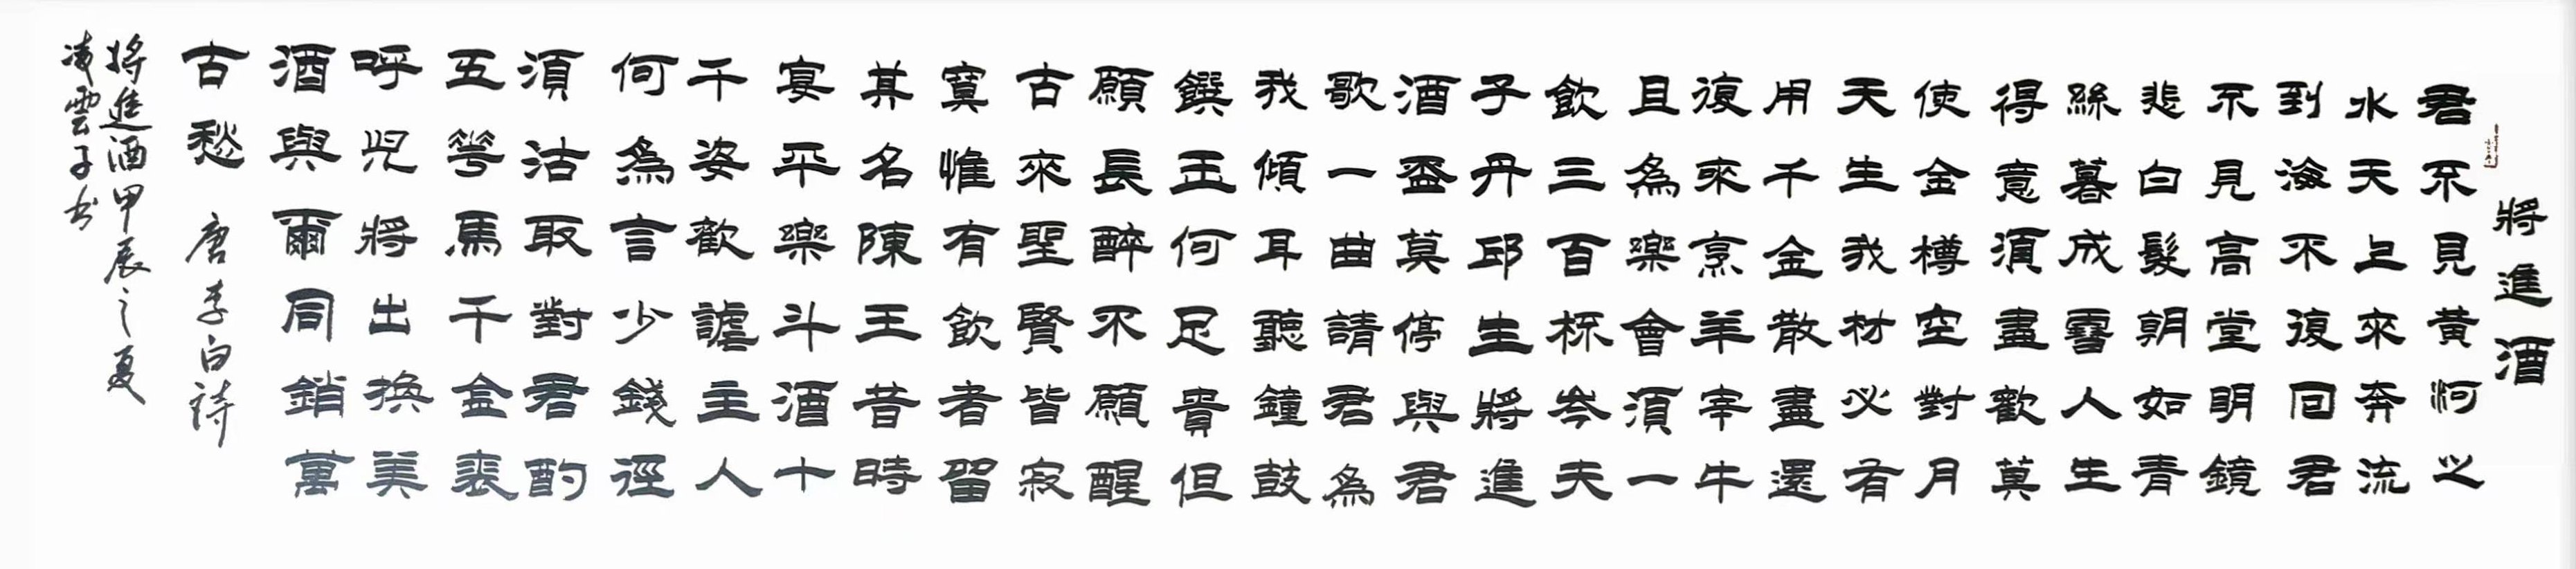 將進酒
君不見黃河之
水天上來奔流
到海不復回君
不見高堂明鏡
悲白髮朝如青
絲暮成雪人生
得意須盡歡莫
使金樽空對月
天生我材必有
用千金散盡還
復來烹羊宰牛
且為樂會須一
飲三百杯岑夫
子丹邱生將進
酒盃莫停與君
歌一曲請君為
我傾耳聽鐘鼓
饌玉何足貴但
願長醉不願醒
古來聖賢皆寂
寞惟有飲者留
其名陳王昔時
宴平樂斗酒十
千姿歡謔主人
何為言少錢徑
須沽取對君酌
五花馬千金裘
呼兒將出換美
酒與爾同銷萬
古愁 唐李白詩
將進酒甲辰之夏
凌雲子书